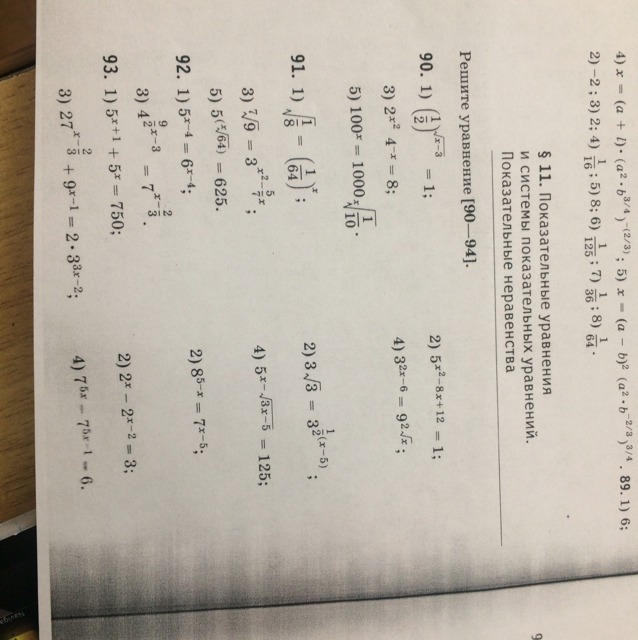 4) x = (a + b) · (a² · b^{3/4})^{-(2/3)}; 5) x = (a − b)² (a² · b^{-2/3})^{3/4}. 89. 1) 6;
2) −2; 3) 2; 4) 1/16; 5) 8; 6) 1/125; 7) 1/36; 8) 1/64.
§ 11. Показательные уравнения
и системы показательных уравнений.
Показательные неравенства
Решите уравнение [90—94].
90. 1) (1/2)^{√(x−3)} = 1; 2) 5^{x²−8x+12} = 1;
3) 2^{x²} 4^{−x} = 8; 4) 3^{2x−6} = 9^{2√x};
5) 100^x = 1000 \sqrt[x]{1/10}.
91. 1) √(1/8) = (1/64)^x; 2) 3√3 = 3^{1/2(x−5)};
3) \sqrt[7]{9} = 3^{x²−5/7x}; 4) 5^{x−√(3x−5)} = 125;
5) 5^{(\sqrt[x]{64})} = 625.
92. 1) 5^{x−4} = 6^{x−4}; 2) 8^{5−x} = 7^{x−5};
3) 4^{9/2x−3} = 7^{x−2/3}.
93. 1) 5^{x+1} + 5^x = 750; 2) 2^x − 2^{x−2} = 3;
3) 27^{x−2/3} + 9^{x−1} = 2 · 3^{3x−2}; 4) 7^{5x} − 7^{5x−1} = 6.
9